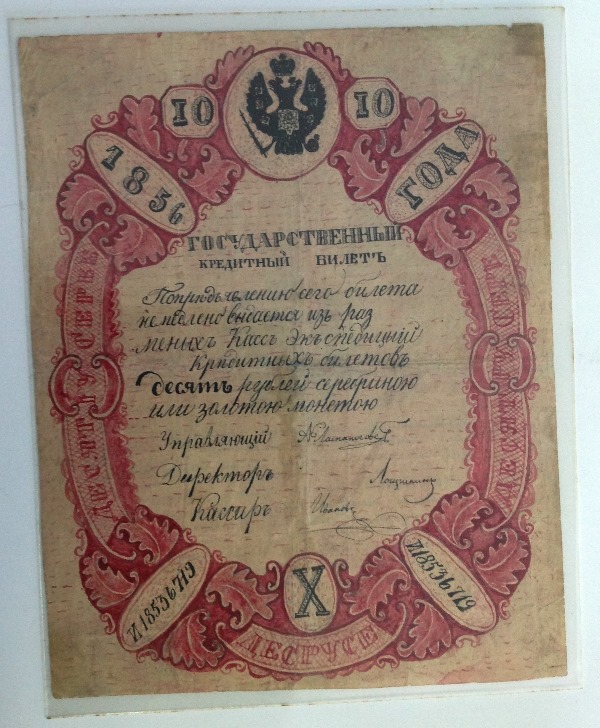 10 10
1856 ГОДА
ГОСУДАРСТВЕННЫЙ
КРЕДИТНЫЙ БИЛЕТЪ
По предъявлению сего билета
немедлено выдается изъ раз
менныхъ Кассъ Экъспедиций
Кридитныхъ билетовъ
Десять рублей серебряною
или золотою монетою
Управляющий
Директоръ
Кассиръ Иванов
ДЕСЯТПУСЕРЕ
И1853Б719
X
И1853Б719
ДЕСТУСЕ